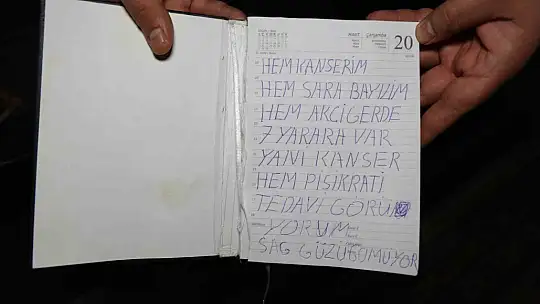 20
HEM KANSERİM
HEM SARA BAYIZIM
HEM AKCİGERDE
7 YARARA VAR
YANİ KANSER
HEM PİŞİKRATİ
TEDAVİ GÖRÜ
YORUM
SAG GÜZÜGÖMÜYOR